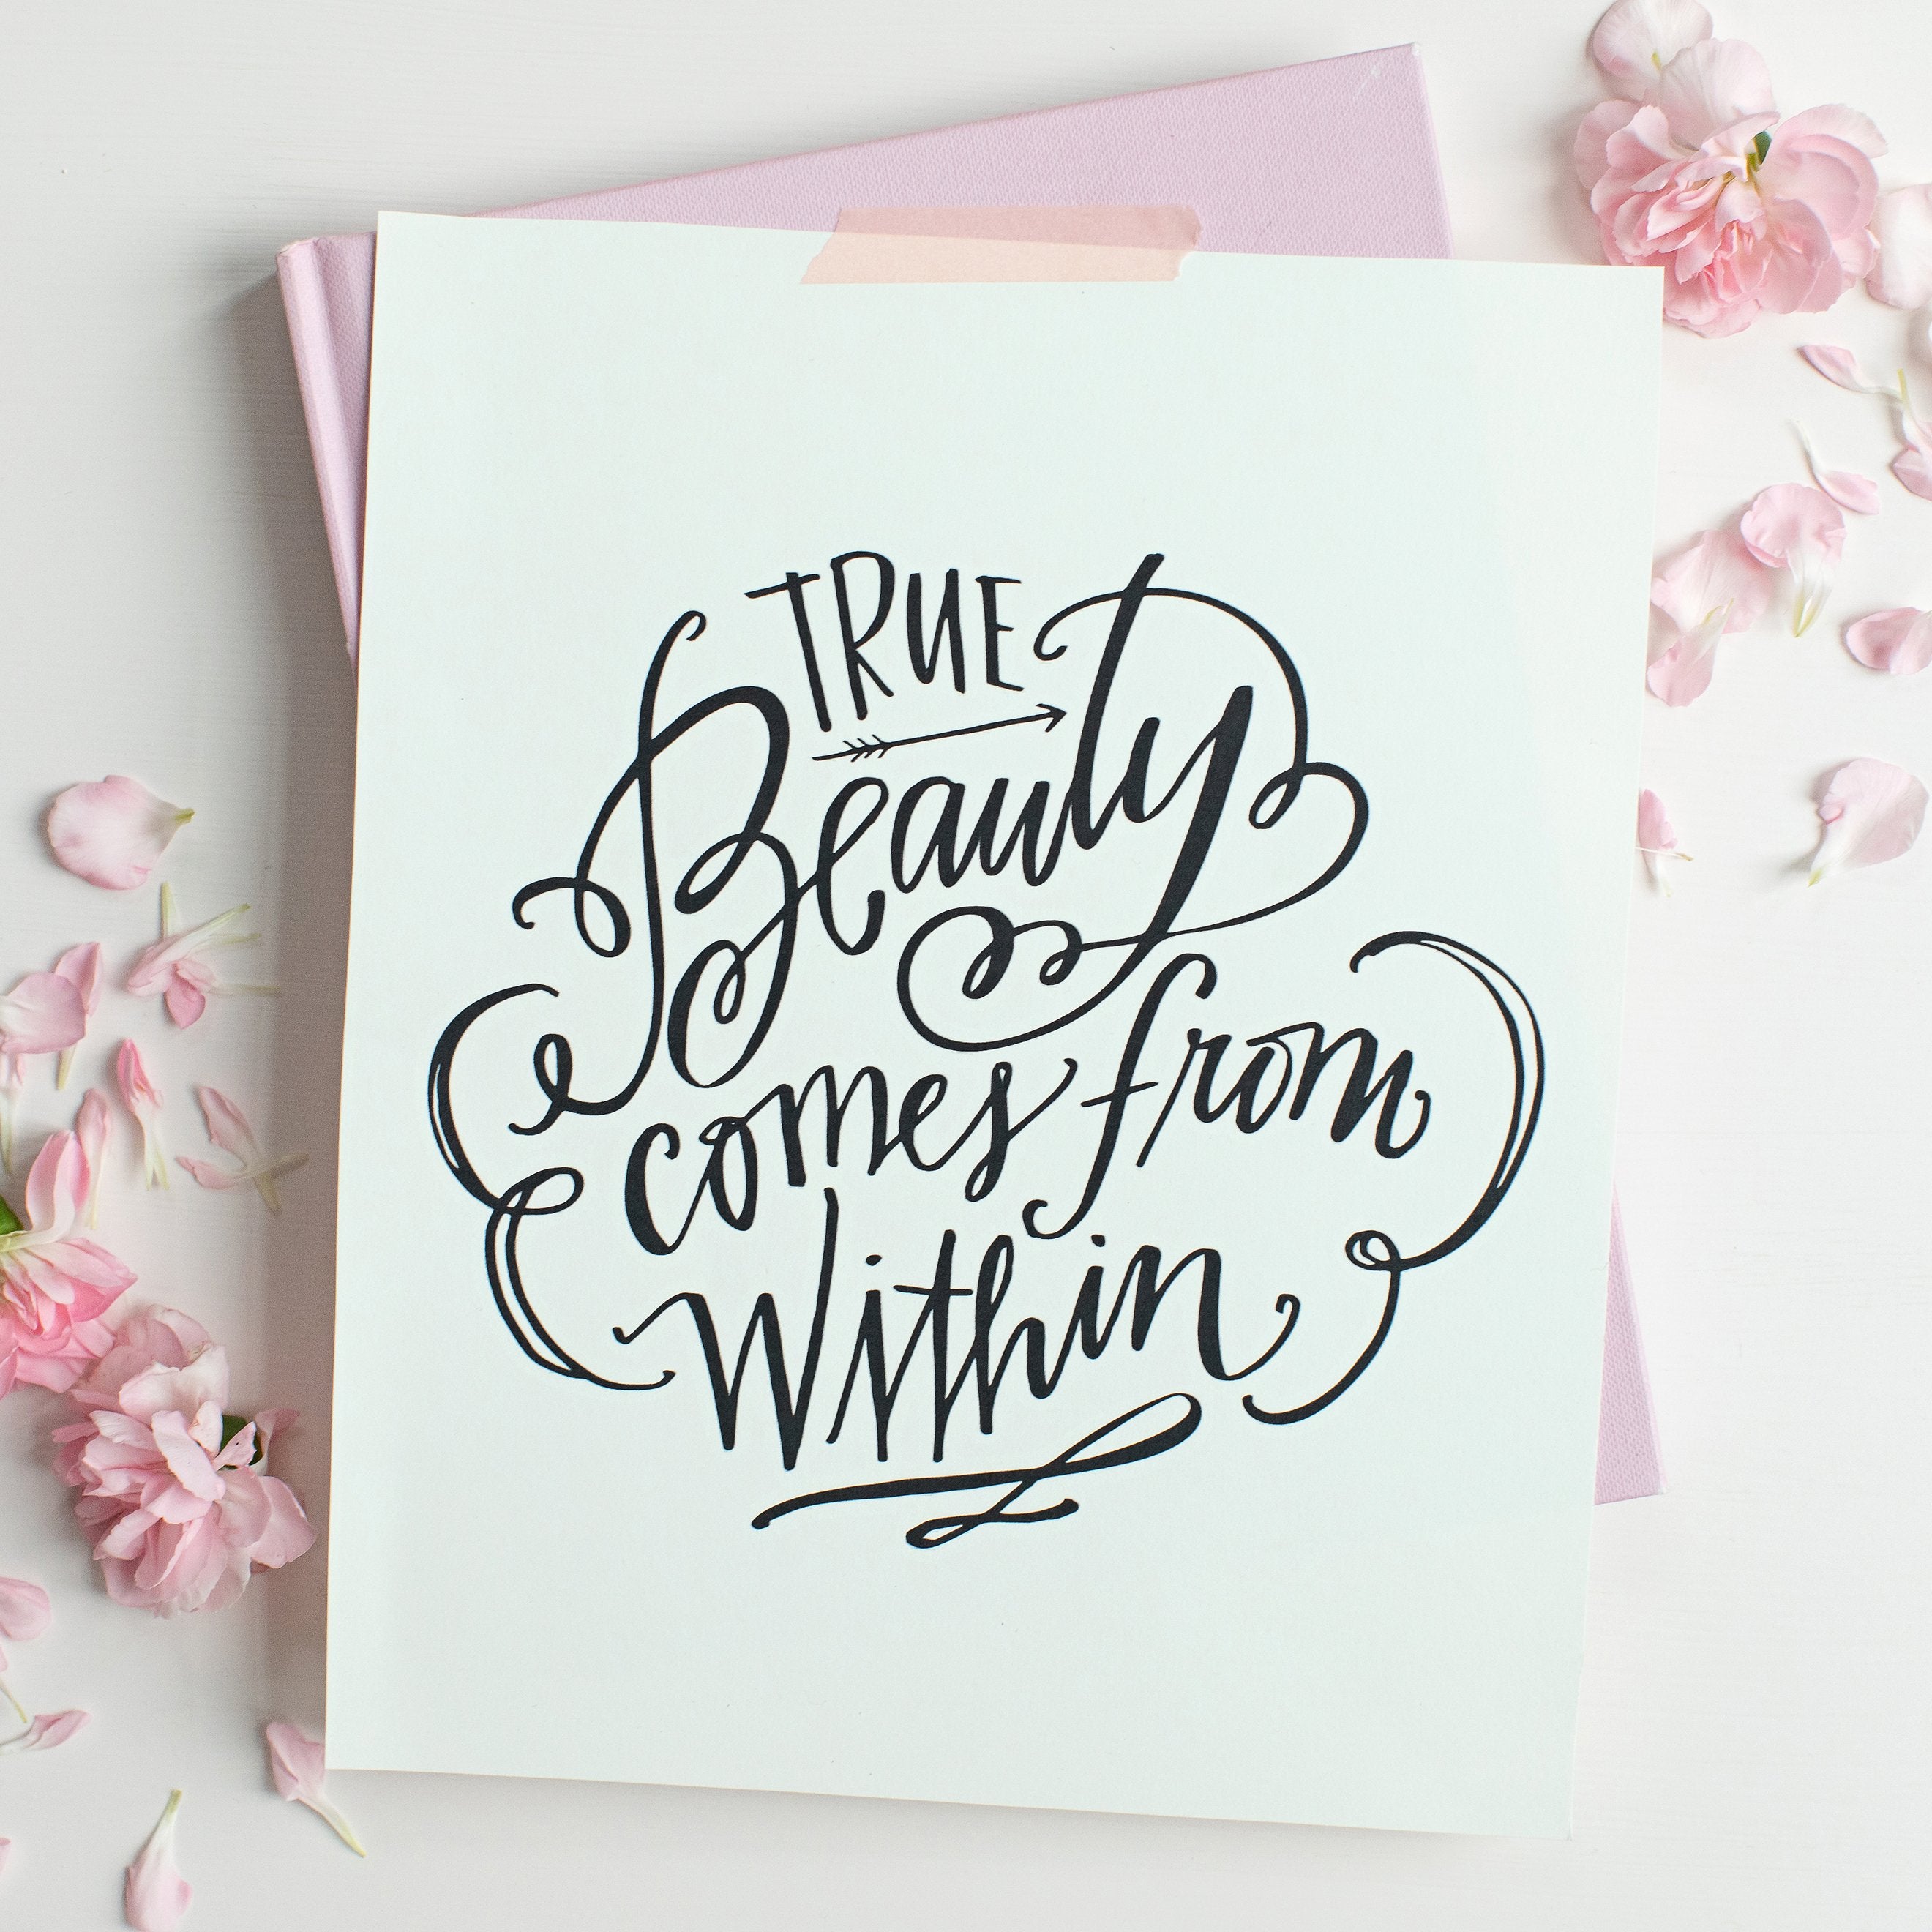 TRUE
Beauty
comes from
Within